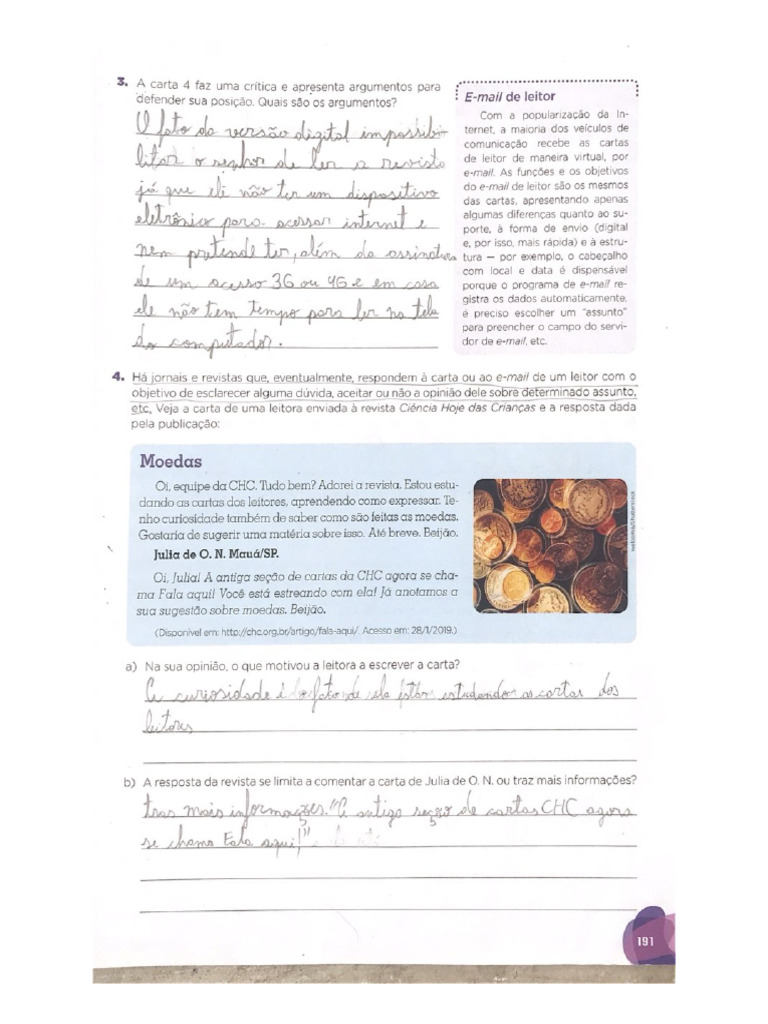 3. A carta 4 faz uma crítica e apresenta argumentos para
defender sua posição. Quais são os argumentos?
O fato da versão digital impossibi-
litar o senhor de ler a revista
já que ele não ter um dispositivo
eletrônico para acessar internet e
nem pretende ter, além da assinatura
de um acesso 3G ou 4G e em casa
ele não tem tempo para ler na tela
do computador.
E-mail de leitor
Com a popularização da In-
ternet, a maioria dos veículos de
comunicação recebe as cartas
de leitor de maneira virtual, por
e-mail. As funções e os objetivos
do e-mail de leitor são os mesmos
das cartas, apresentando apenas
algumas diferenças quanto ao su-
porte, à forma de envio (digital
e, por isso, mais rápida) e à estru-
tura — por exemplo, o cabeçalho
com local e data é dispensável
porque o programa de e-mail re-
gistra os dados automaticamente,
é preciso escolher um "assunto"
para preencher o campo do servi-
dor de e-mail, etc.
4. Há jornais e revistas que, eventualmente, respondem à carta ou ao e-mail de um leitor com o
objetivo de esclarecer alguma dúvida, aceitar ou não a opinião dele sobre determinado assunto,
etc. Veja a carta de uma leitora enviada à revista Ciência Hoje das Crianças e a resposta dada
pela publicação:
Moedas
Oi, equipe da CHC. Tudo bem? Adorei a revista. Estou estu-
dando as cartas dos leitores, aprendendo como expressar. Te-
nho curiosidade também de saber como são feitas as moedas.
Gostaria de sugerir uma matéria sobre isso. Até breve. Beijão.
Julia de O. N. Mauá/SP.
Oi, Julia! A antiga seção de cartas da CHC agora se cha-
ma Fala aqui! Você está estreando com ela! Já anotamos a
sua sugestão sobre moedas. Beijão.
(Disponível em: http://chc.org.br/artigo/fala-aqui/. Acesso em: 28/1/2019.)
a) Na sua opinião, o que motivou a leitora a escrever a carta?
A curiosidade é fato de ela estar estudando as cartas dos
leitores
b) A resposta da revista se limita a comentar a carta de Julia de O. N. ou traz mais informações?
tras mais informações. "A antiga seção de cartas CHC agora
se chama Fala aqui!"
191